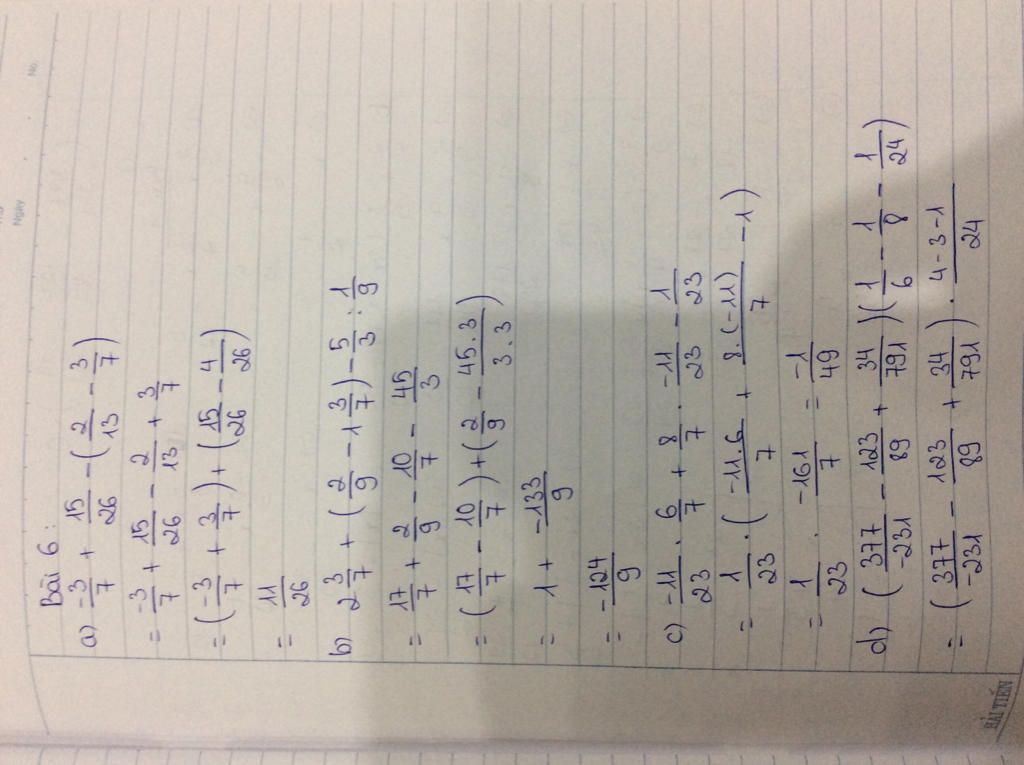 No.
Ngày
Bài 6:
a) -3/7 + 15/26 - (2/13 - 3/7)
= -3/7 + 15/26 - 2/13 + 3/7
= (-3/7 + 3/7) + (15/26 - 4/26)
= 11/26
b) 2 3/7 + (2/9 - 1 3/7) - 5/3 : 1/9
= 17/7 + 2/9 - 10/7 - 45/3
= (17/7 - 10/7) + (2/9 - 45.3/3.3)
= 1 + -133/9
= -124/9
c) -11/23 . 6/7 + 8/7 . -11/23 - 1/23
= 1/23 . (-11.6/7 + 8.(-11)/7 - 1)
= 1/23 . -161/7 = -1/49
d) (377/-231 - 123/89 + 34/791)(1/6 - 1/8 - 1/24)
= (377/-231 - 123/89 + 34/791) . 4-3-1/24
HẢI TIẾN